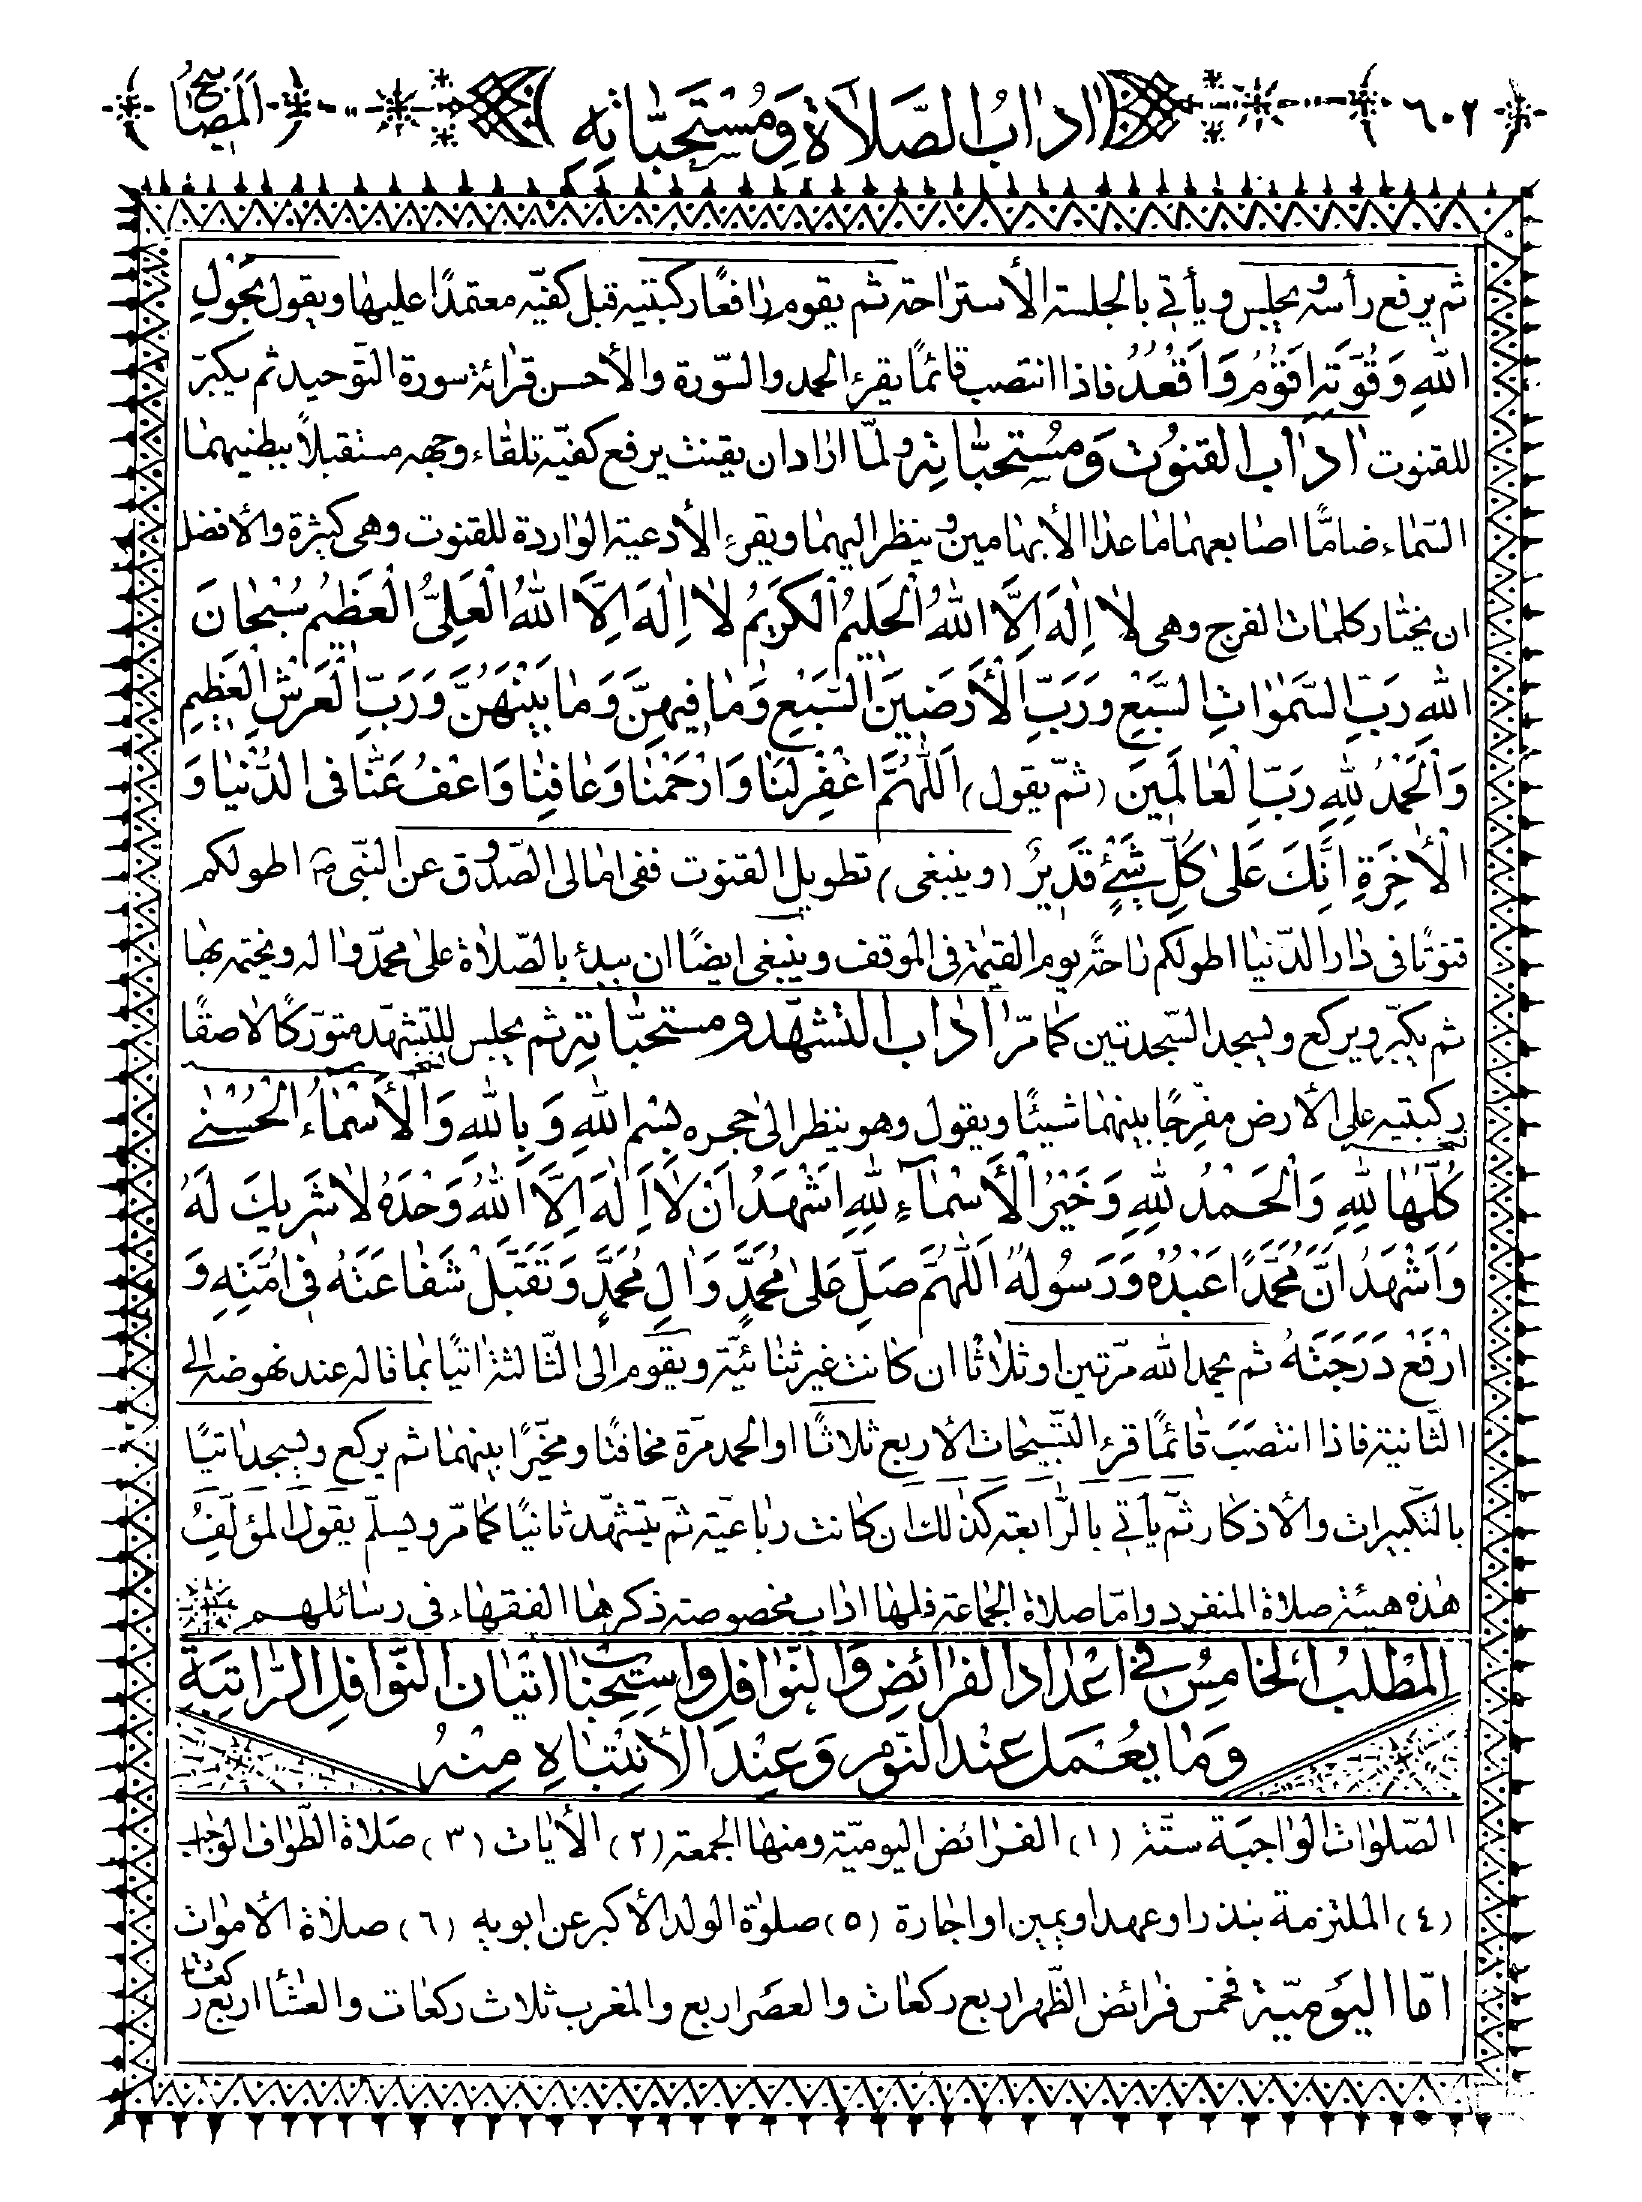 ٦٠٢ اٰدٰابُ الصَّلاٰةِ وَمُسْتَحَبّٰاتِهِ المَصٰابيح
ثم يرفع رأسه ويجلس ويأتي بالجلسة الأستراحة ثم يقوم رٰافعًا ركبتيه قبل كفيّه معتمدًا عليهٰا ويقول بِحَوْلِ
اللهِ وَقُوَّتِهِ اَقُوْمُ وَاَقْعُدُ فاذا انتصب قائمًا يقرء الحمد والسّورة والأحسن قرٰائة سورة التّوحيد ثم يكبّر
للقنوت اٰدٰاب القنُوت وَمُستحبّٰاتِه ولمّا ارٰاد ان يقنت يرفع كفيّه تلقٰاء وجهه مستقبلاً ببطنيهمٰا
السّمٰاء ضٰامًّا اصٰابعهمٰا مٰا عدٰا الأبهٰامين وينظر اليهمٰا ويقرء الأدعية الوٰاردة للقنوت وهى كثيرة والأفضل
ان يختٰار كلمٰات الفرج وهى لاٰ اِلٰهَ اِلاَّ اللهُ الْحَلِيمُ الْكَرِيمُ لاٰ اِلٰهَ اِلاَّ اللهُ الْعَلِىُّ الْعَظِيمُ سُبْحٰانَ
اللهِ رَبِّ السَّمٰوٰاتِ السَّبْعِ وَرَبِّ الْأَرَضِينَ السَّبْعِ وَمٰا فِيهِنَّ وَمٰا بَيْنَهُنَّ وَرَبِّ الْعَرْشِ الْعَظِيمِ
وَالْحَمْدُ لِلّٰهِ رَبِّ الْعٰالَمِينَ (ثمّ يقول) اَللّٰهُمَّ اغْفِرْ لَنٰا وَارْحَمْنٰا وَعٰافِنٰا وَاعْفُ عَنّٰا فى الدُّنْيٰا وَ
الْأٰخِرَةِ اِنَّكَ عَلىٰ كُلِّ شَىْءٍ قَدِيرٌ (وينبغى) تطويل القنوت ففى امٰالى الصّدوق عن النّبى ص اطولكم
قنوتًا فى دٰار الدّنيٰا اطولكم رٰاحةً يوم القيٰمة فى الموقف وينبغى ايضًا ان يبدء بالصّلاٰة علىٰ محمّد واٰله ويختمه بهٰا
ثم يكبّر ويركع ويسجد السّجدتين كمٰا مرّ اٰدٰاب التشهّد ومستحبّٰاته ثم يجلس للتّشهّد متورّكًا لاٰصقًا
ركبتيه على الأرض مفرجًا بينهمٰا شيئًا ويقول وهو ينظر الىٰ حجره بِسْمِ اللهِ وَبِاللهِ وَالْأَسْمٰاءُ الْحُسْنىٰ
كُلُّهٰا لِلّٰهِ وَالْحَمْدُ لِلّٰهِ وَخَيْرُ الْأَسْمٰآءِ لِلّٰهِ اَشْهَدُ اَنْ لاٰ اِلٰهَ اِلاَّ اللهُ وَحْدَهُ لاٰ شَرِيكَ لَهُ
وَاَشْهَدُ اَنَّ مُحَمَّدًا عَبْدُهُ وَرَسُولُهُ اَللّٰهُمَّ صَلِّ عَلىٰ مُحَمَّدٍ وَاٰلِ مُحَمَّدٍ وَتَقَبَّلْ شَفٰاعَتَهُ فِى اُمَّتِهِ وَ
ارْفَعْ دَرَجَتَهُ ثم يحمد الله مرّتين او ثلاٰثًا ان كٰانت غير ثنٰائيّة ويقوم الى الثّالثة اٰتيًا بمٰا قٰاله عند نهوضه الى
الثّٰانية فاذا انتصَبَ قٰائمًا قرء التّسبيحٰات الأربع ثلاثًا او الحمد مرّة مخافتًا ومخيّرًا بينهمٰا ثم يركع ويسجد اٰتيًا
بالتّكبيرات والأذكٰار ثمّ يأتي بالرّٰابعة كذٰلك ان كٰانت ربٰاعيّة ثمّ يتشهّد ثانيًا كمٰا مرّ ويسلّم يقول المؤلّفُ
هٰذه هيئة صلاة المنفرد وامّا صلاة الجمٰاعة فلهٰا اٰداب مخصوصة ذكرهٰا الفقهٰاء فى رسٰائلهم
المَطْلبُ الخٰامِسُ فى اَعْدٰاد الفرٰائضِ وَالنّوٰافِل وَاستِحبٰاب اتْيٰان النّوٰافِل الرّٰاتِبَة
وَمٰا يُعْمَل عنْد النّوم وَعِنْدَ الأنتِبٰاهِ مِنْهُ
الصّلوٰات الوٰاجبَة ستّة (١) الفرٰائض اليوميّة ومنهٰا الجمعة (٢) الأيٰات (٣) صَلاٰة الطّوٰاف الوٰاجب
(٤) الملتزمة بنذر او عهد او يمين او اجٰارة (٥) صلوٰة الولد الأكبر عن ابويه (٦) صلاٰة الأموٰات
امّا اليَوميّة فخمس فرٰائض الظّهر اربع ركعٰات والعصر اربع والمغرب ثلاث ركعٰات والعشٰا اربع ركعٰات